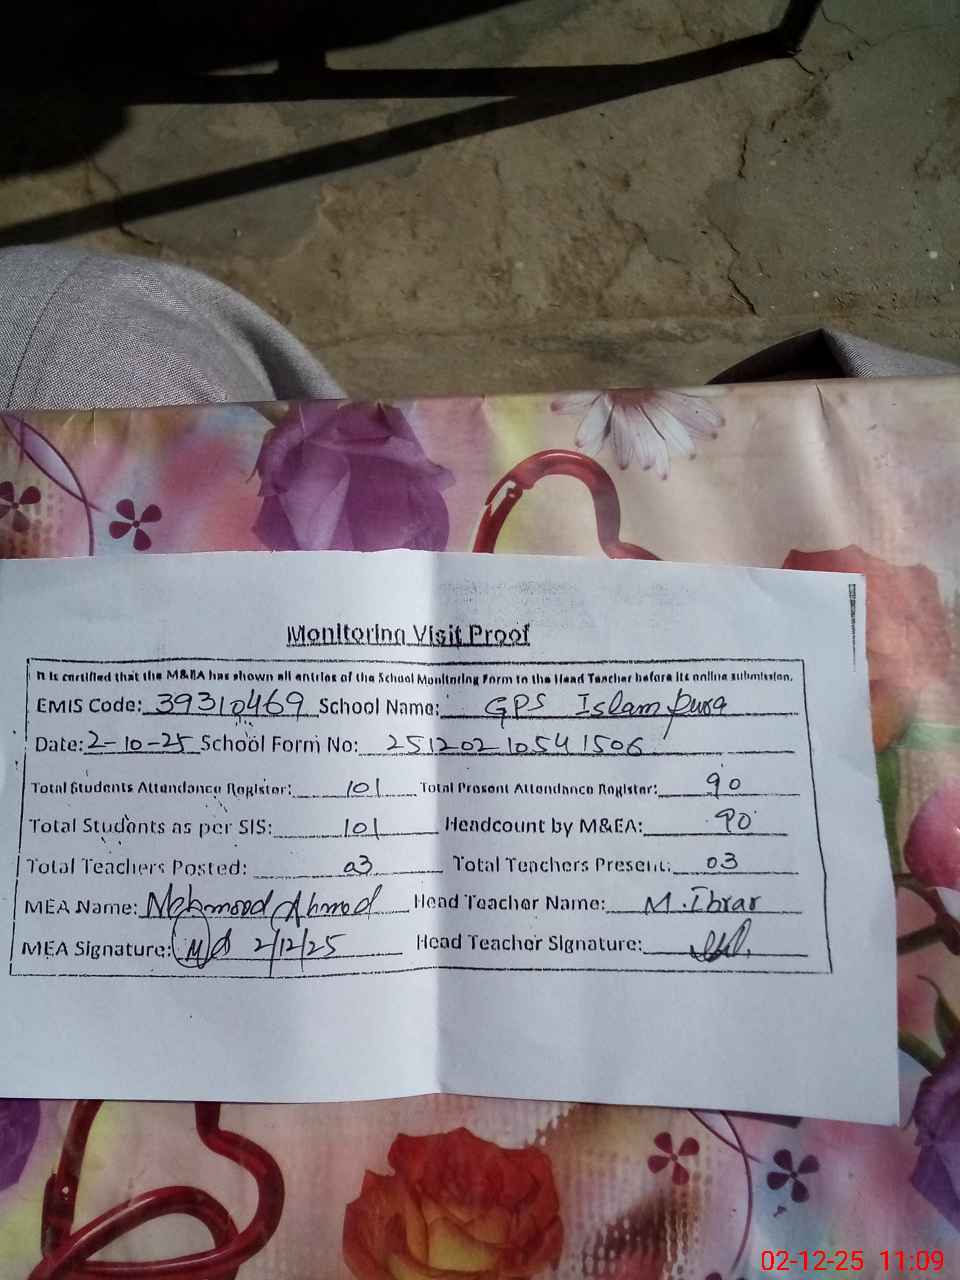 Monitoring Visit Proof
It is certified that the M&EA has shown all entries of the School Monitoring Form to the Head Teacher before its online submission.
EMIS Code: 39310469 School Name: GPS Islam pura
Date: 2-10-25 School Form No: 25120210541506
Total Students Attendance Register: 101 Total Present Attendance Register: 90
Total Students as per SIS: 101 Headcount by M&EA: 90
Total Teachers Posted: 03 Total Teachers Present: 03
MEA Name: Mehmood Ahmed Head Teacher Name: M. Ibrar
MEA Signature: 2/12/25 Head Teacher Signature:
02-12-25 11:09